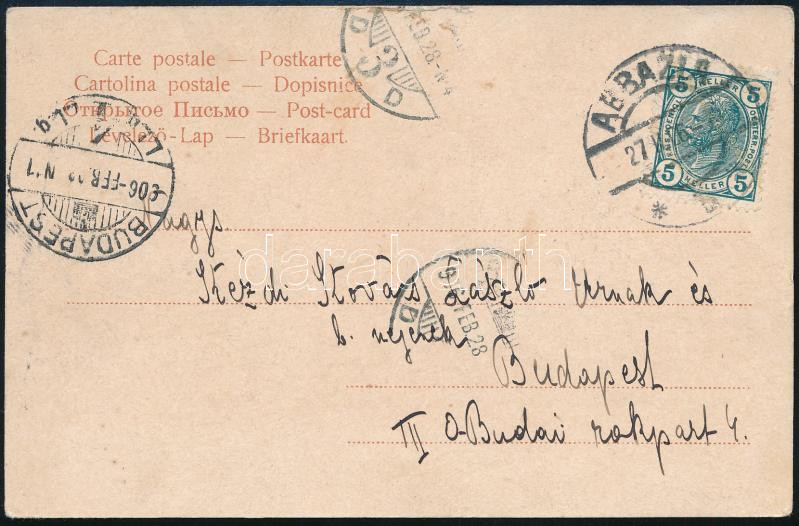 Carte postale — Postkarte
Cartolina postale — Dopisnice
Открытое Письмо — Post-card
Levelező-Lap — Briefkaart.
FEB. 28
D
ABBAZIA
27
5 HELLER 5
5 HELLER 5
BUDAPEST
906 FEB. 28 N
Nagys.
Kézdi Kovács László Urnak és
b. nejének
Budapest
III O-Budai rakpart 4.
FEB 28
D
darabanth